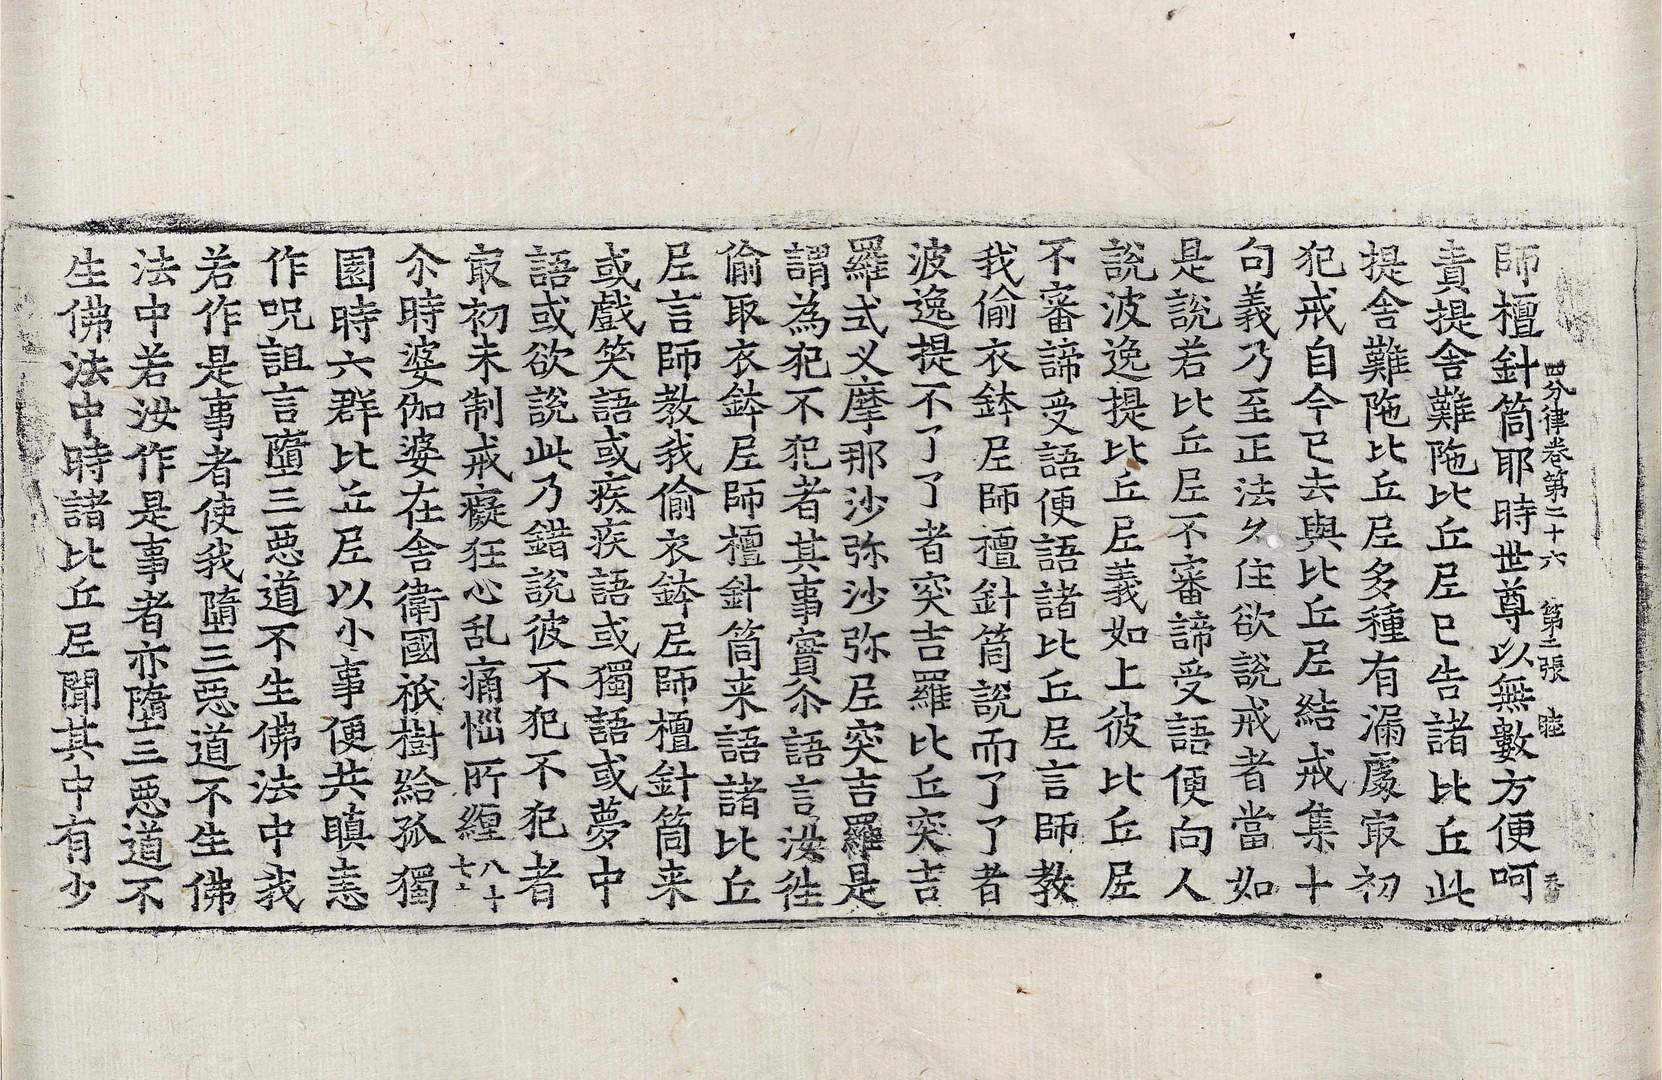 四分律卷第二十六　第二張　睦
師檀針筒耶時世尊以無數方便呵
責提舍難陁比丘尼已告諸比丘此
提舍難陁比丘尼多種有漏處㝡初
犯戒自今已去與比丘尼結戒集十
句義乃至正法久住欲說戒者當如
是說若比丘尼不審諦受語便向人
說波逸提比丘尼義如上彼比丘尼
不審諦受語便語諸比丘尼言師教
我偷衣鉢尼師檀針筒說而了了者
波逸提不了了者突吉羅比丘突吉
羅式叉摩那沙弥沙弥尼突吉羅是
謂為犯不犯者其事實尒語言汝徃
偷取衣鉢尼師檀針筒来語諸比丘
尼言師教我偷衣鉢尼師檀針筒来
或戲笑語或疾疾語或獨語或夢中
語或欲說此乃錯說彼不犯不犯者
㝡初未制戒癡狂心乱痛惱所纏八十七
尒時婆伽婆在舍衛國祇樹給孤獨
園時六群比丘尼以小事便共瞋恚
作呪詛言墮三惡道不生佛法中我
若作是事者使我墮三惡道不生佛
法中若汝作是事者亦墮三惡道不
生佛法中時諸比丘尼聞其中有少